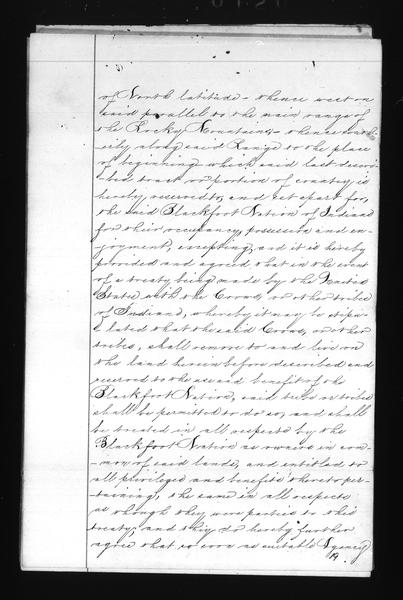 of North latitude - thence west on
said parallel to the main range of
the Rocky Mountains - thence north
-erly along said Range to the place
of beginning which said last descri
-bed tract or portion of country is
hereby reserved to, and set apart for,
the said Blackfoot Nation of Indians
for their occupancy, possession, and en-
joyment, excepting, and it is hereby
provided and agreed that in the event
of a treaty being made by the United
States with the Crows, or other tribes
of Indians, whereby it may be stipu-
lated that the said Crows, or other
tribes, shall remove to and live on
the land herein before described and
reserved to the use and benefit of the
Blackfoot Nation, said tribe or tribes
shall be permitted to do so, and shall
be treated in all respects by the
Blackfoot Nation as owners in com-
-mon of said lands, and entitled to
all privileges and benefits thereto per-
-taining, the same in all respects
as though they were parties to this
treaty; and they do hereby further
agree that so soon as suitable Agency